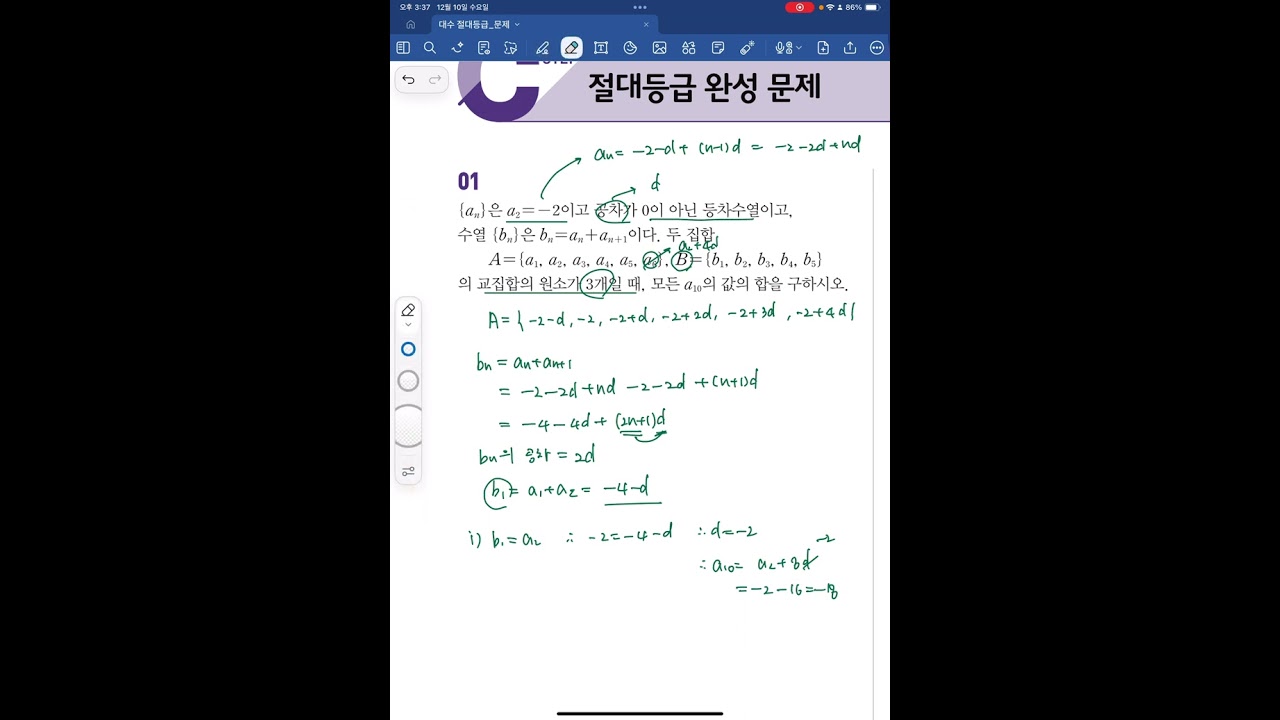 오후 3:37 12월 10일 수요일
86%
대수 절대등급_문제
절대등급 완성 문제
aₙ = -2-d + (n-1)d = -2-2d+nd
01
d
{aₙ}은 a₂=-2이고 공차가 0이 아닌 등차수열이고,
수열 {bₙ}은 bₙ=aₙ+aₙ₊₁이다. 두 집합
a₂+4d
A={a₁, a₂, a₃, a₄, a₅, a₆}, B={b₁, b₂, b₃, b₄, b₅}
의 교집합의 원소가 3개일 때, 모든 a₁₀의 값의 합을 구하시오.
A = { -2-d, -2, -2+d, -2+2d, -2+3d, -2+4d }
bₙ = aₙ+aₙ₊₁
= -2-2d+nd -2-2d +(n+1)d
= -4-4d+ (2n+1)d
bₙ의 공차 = 2d
b₁ = a₁+a₂ = -4-d
i) b₁ = a₂ ∴ -2=-4-d ∴ d=-2
-2
∴ a₁₀= a₂+8d
= -2-16=-18